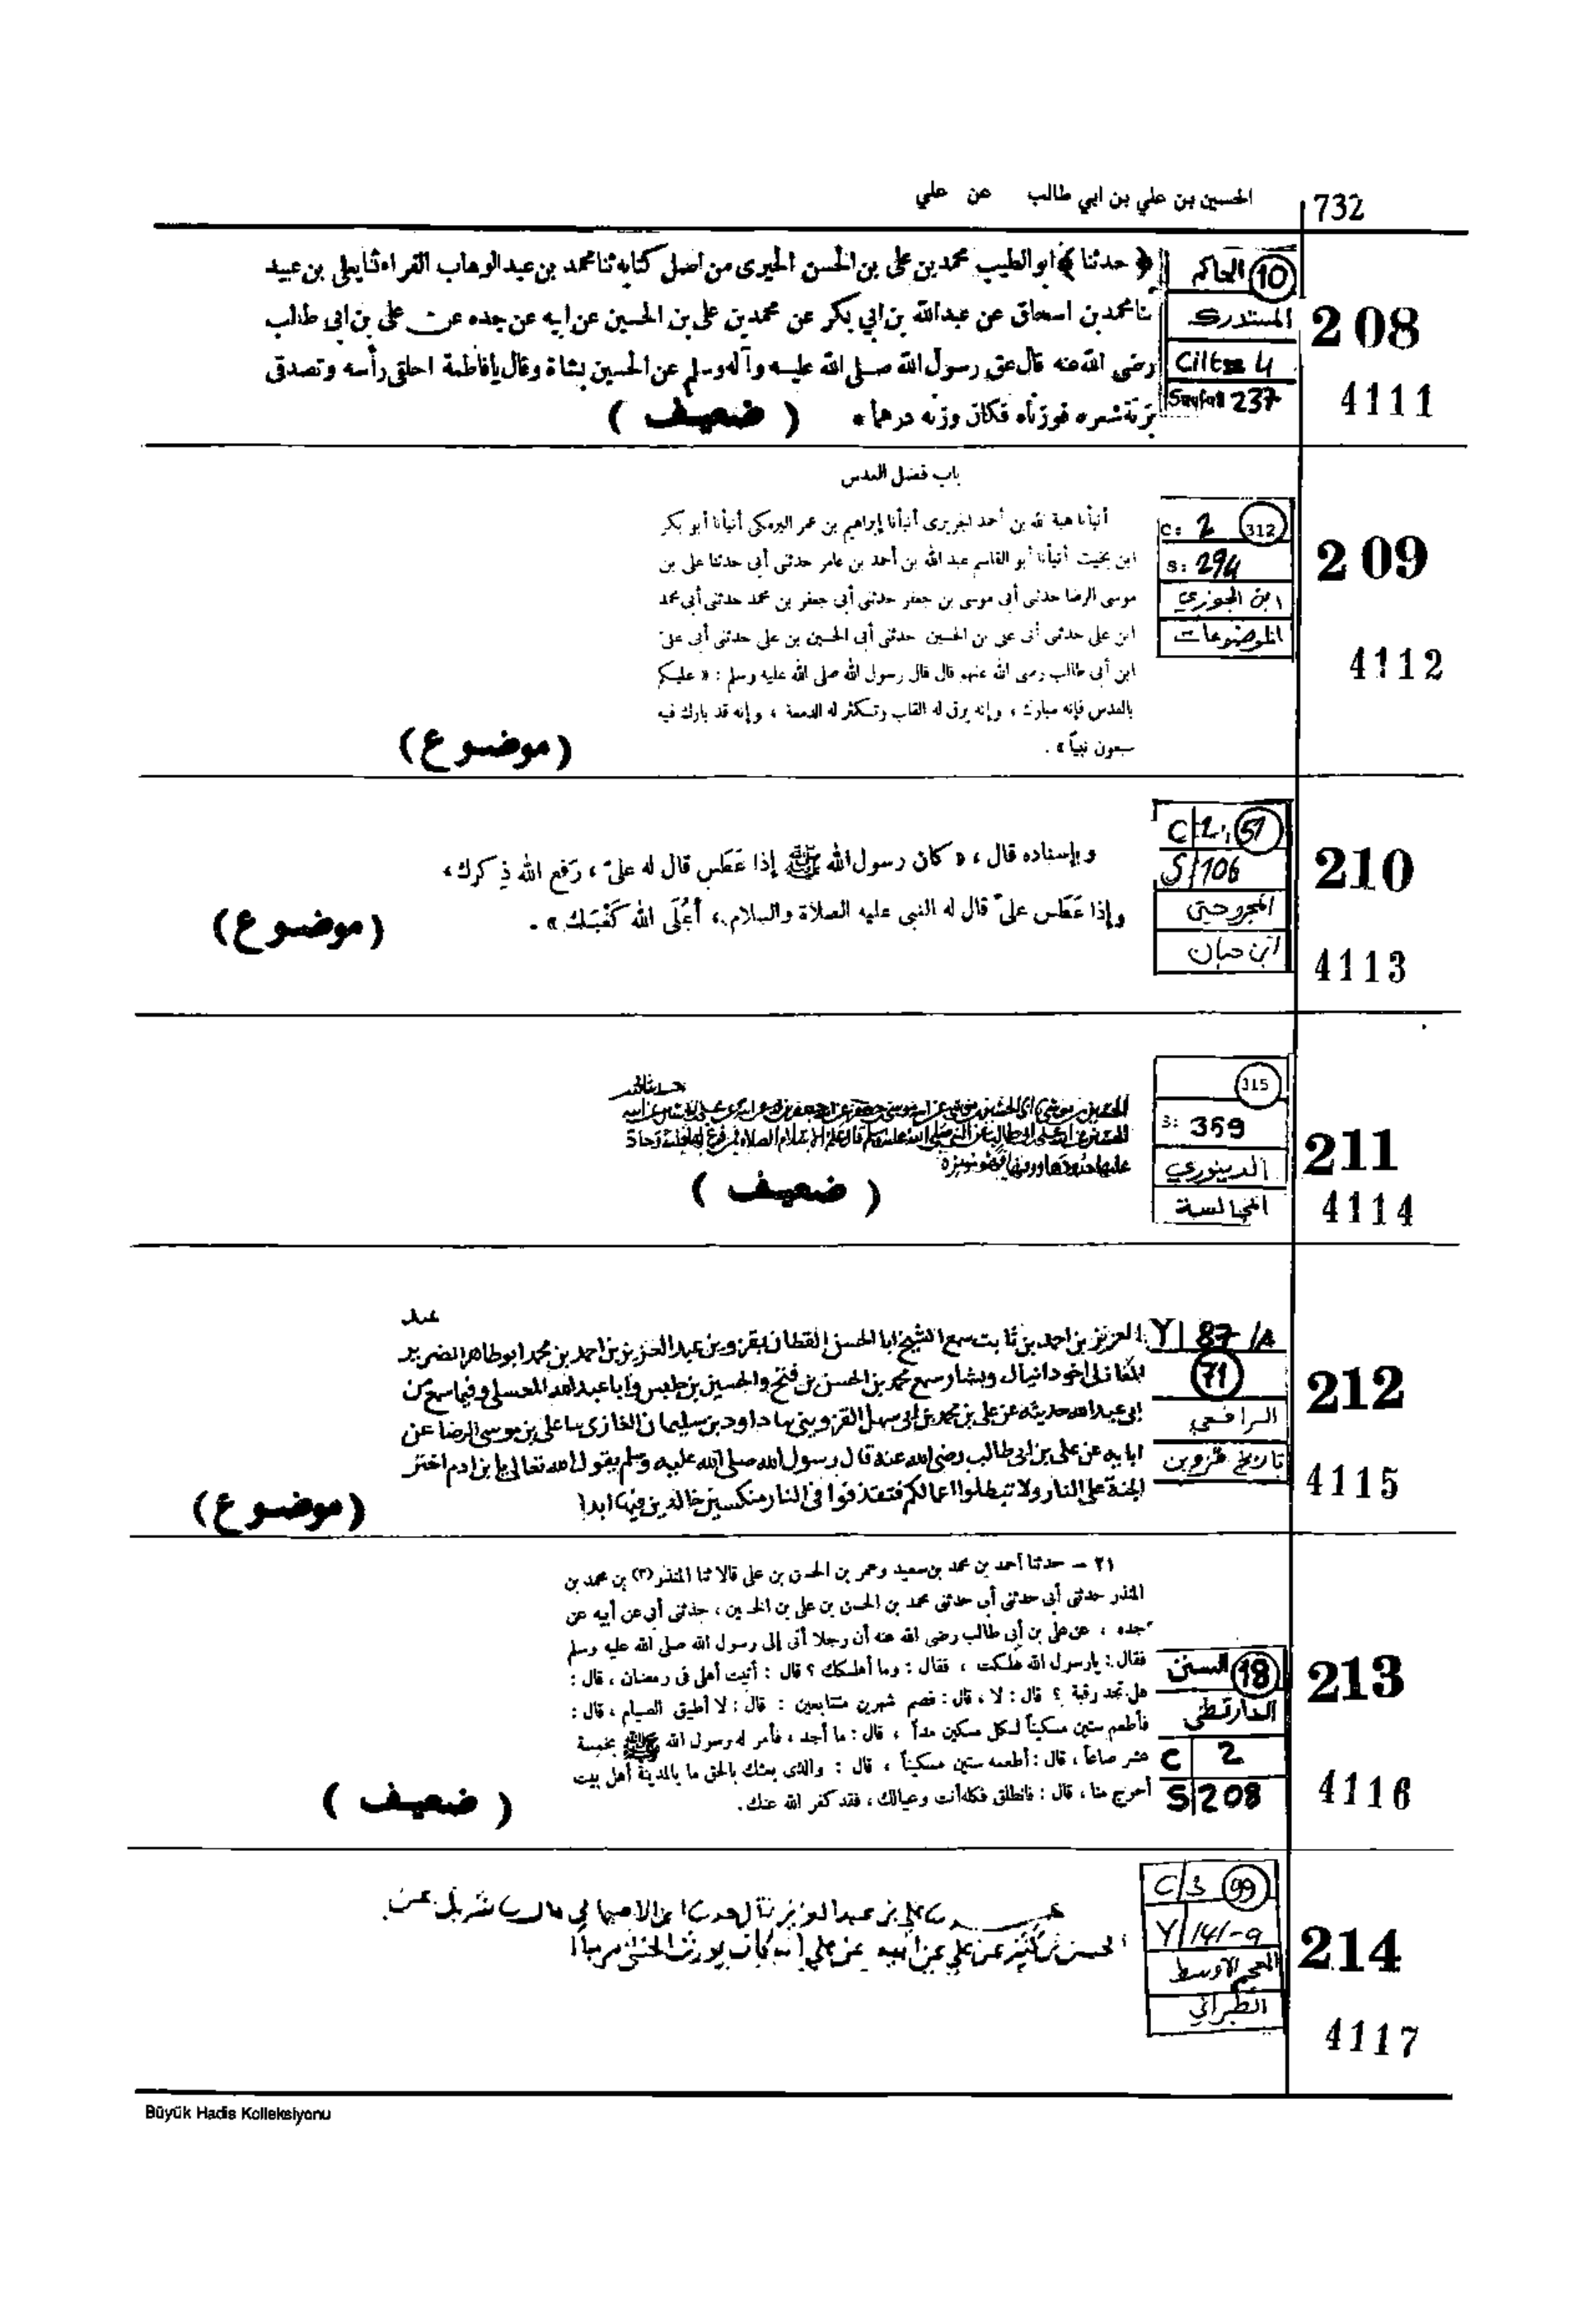 732
الحسين بن علي بن ابي طالب عن علي
208
4111
10 الحاكم
المستدرك
Cilt 4
Sayfa 237
﴿ حدثنا ﴾ ابو الطيب محمد بن على بن الحسن الحيرى من اصل كتابه ثنا محمد بن عبد الوهاب الفراء ثنا يعلى بن عبيد
ثنا محمد بن اسحاق عن عبد الله بن ابي بكر عن محمد بن على بن الحسين عن ابيه عن جده عن على بن ابى طالب
رضى الله عنه قال عق رسول الله صلى الله عليه وآله وسلم عن الحسين بشاة وقال يا فاطمة احلقى رأسه وتصدقى
بزنة شعره فوزناه فكان وزنه درهما *
( ضعيف )
209
4112
C: 2 312
S: 294
ابن الجوزي
الموضوعات
باب فضل العدس
أنبأنا هبة الله بن أحمد الجريرى أنبأنا إبراهيم بن عمر البرمكى أنبأنا أبو بكر
ابن بخيت أنبأنا أبو القاسم عبد الله بن أحمد بن عامر حدثنى أبى حدثنا على بن
موسى الرضا حدثنى أبى موسى بن جعفر حدثنى أبى جعفر بن محمد حدثنى أبى محمد
ابن على حدثنى أبى على بن الحسين حدثنى أبى الحسين بن على حدثنى أبى على
ابن أبى طالب رضى الله عنهم قال قال رسول الله صلى الله عليه وسلم : « عليكم
بالعدس فإنه مبارك ، وإنه يرق له القلب وتكثر له الدمعة ، وإنه قد بارك فيه
سبعون نبياً » .
(موضوع)
210
4113
C 2 51
S 106
المجروحين
ابن حبان
وبإسناده قال ، « كان رسول الله ﷺ إذا عَطَس قال له علىّ ، رَفع الله ذِكرك ،
وإذا عَطَس علىّ قال له النبى عليه الصلاة والسلام ، أعْلَى الله كَعْبَك » .
(موضوع)
211
4114
115
S: 359
الدينوري
المجالسة
( ضعيف )
212
4115
Y 87/A
71
الرافعي
تاريخ قزوين
عبد
العزيز بن احمد بن ثابت سمع الشيخ ابا الحسن القطان بقزوين عبد العزيز بن احمد بن محمد ابو طاهر الضرير
اخو دانيال وبشار سمع محمد بن الحسن بن فتح والحسين بن حلبس وابا عبد الله العسلي وفيما سمع من
ابى عبد الله حديثه عن على بن محمد بن ابى سهل القزويني بها داود بن سليمان الغازى ثنا على بن موسى الرضا عن
ابايه عن على بن ابى طالب رضى الله عنه قال رسول الله صلى الله عليه وسلم يقول الله تعالى يا بن ادم اختر
الجنة على النار ولا تبطلوا اعمالكم فتقذفوا في النار منكسين خالدين فيها ابدا
(موضوع)
213
4116
18 السنن
الدارقطني
C 2
S 208
٢١ – حدثنا أحمد بن محمد بن سعيد وعمر بن الحسن بن على قالا ثنا المنذر (٣) بن محمد بن
المنذر حدثنى أبى حدثنى أبى حدثنى محمد بن الحسن بن على بن الحسين ، حدثنى أبى عن أبيه عن
جده ، عن على بن أبى طالب رضى الله عنه أن رجلا أتى إلى رسول الله صلى الله عليه وسلم
فقال : يارسول الله هلكت ، فقال : وما أهلكك ؟ قال : أتيت أهلى فى رمضان ، قال :
هل تجد رقبة ؟ قال : لا ، قال : فصم شهرين متتابعين : قال : لا أطيق الصيام ، قال :
فأطعم ستين مسكيناً لكل مسكين مداً ، قال : ما أجد ، فأمر له رسول الله ﷺ بخمسة
عشر صاعاً ، قال : أطعمه ستين مسكيناً ، قال : والذى بعثك بالحق ما بالمدينة أهل بيت
أحوج منا ، قال : فانطلق فكله أنت وعيالك ، فقد كفر الله عنك .
( ضعيف )
214
4117
C/3 99
Y 141-a
المعجم الاوسط
الطبراني
علي بن عبد العزيز قال حدثنا ابن الاصبهاني قال شريك عن
الحسن بن كثير عن علي عن ابيه عن علي انه كان يورث الخنثى من
Büyük Hadis Kolleksiyonu